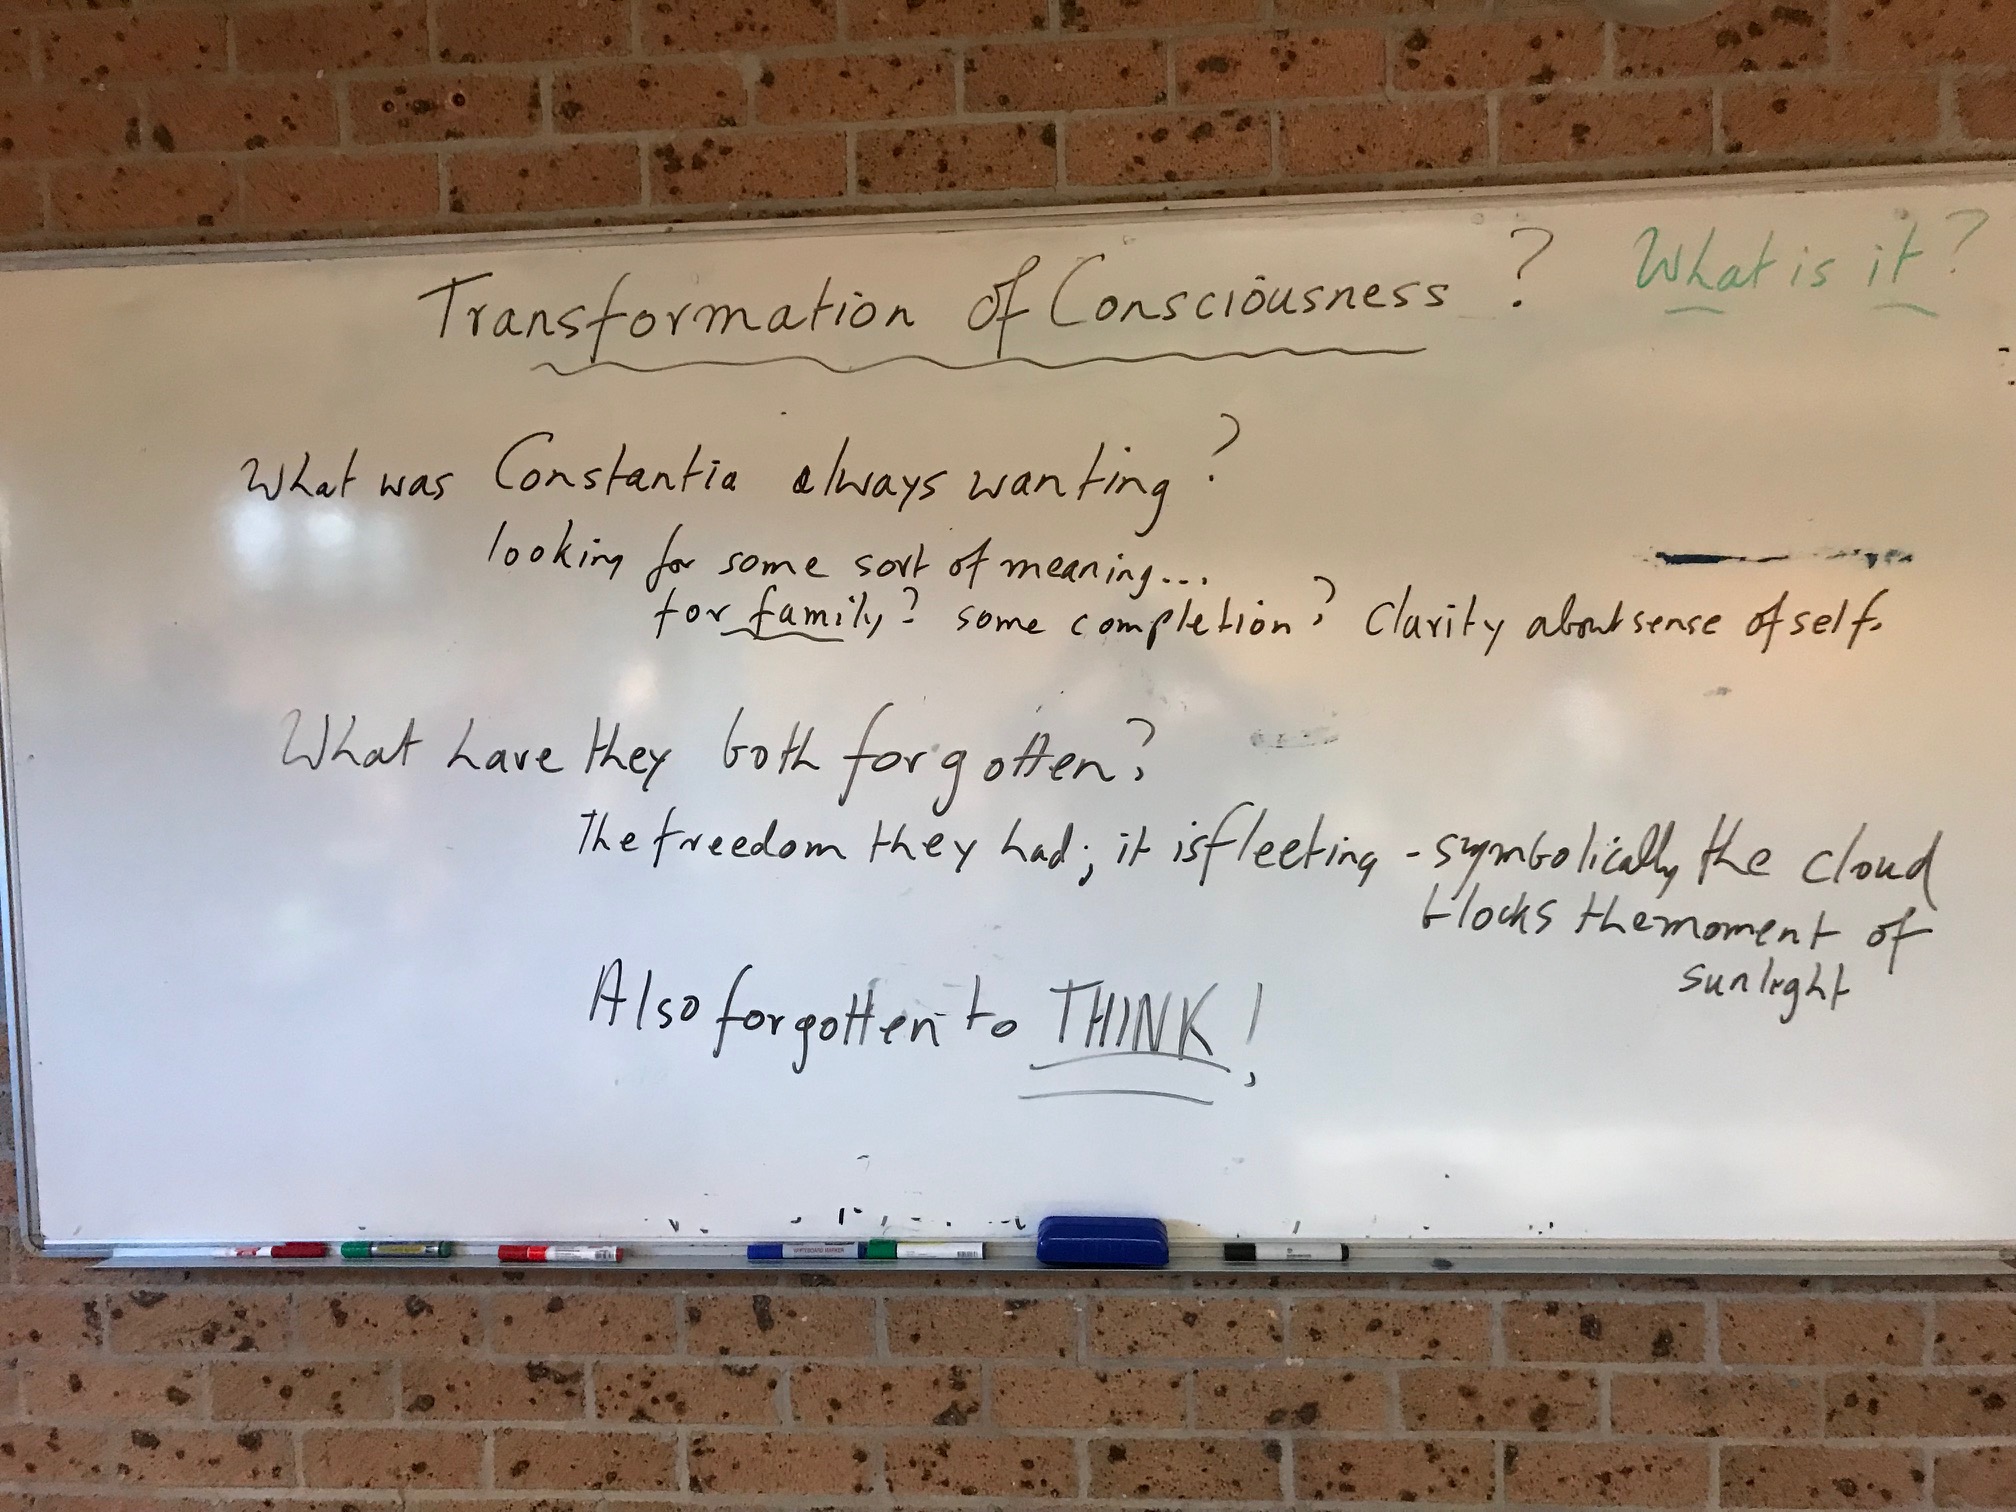 Transformation of Consciousness ? What is it?
What was Constantia always wanting?
looking for some sort of meaning...
for family? some completion? Clarity about sense of self.
What have they both forgotten?
The freedom they had; it is fleeting - symbolically the cloud
blocks the moment of
sunlight
Also forgotten to THINK!
WHITEBOARD MARKER